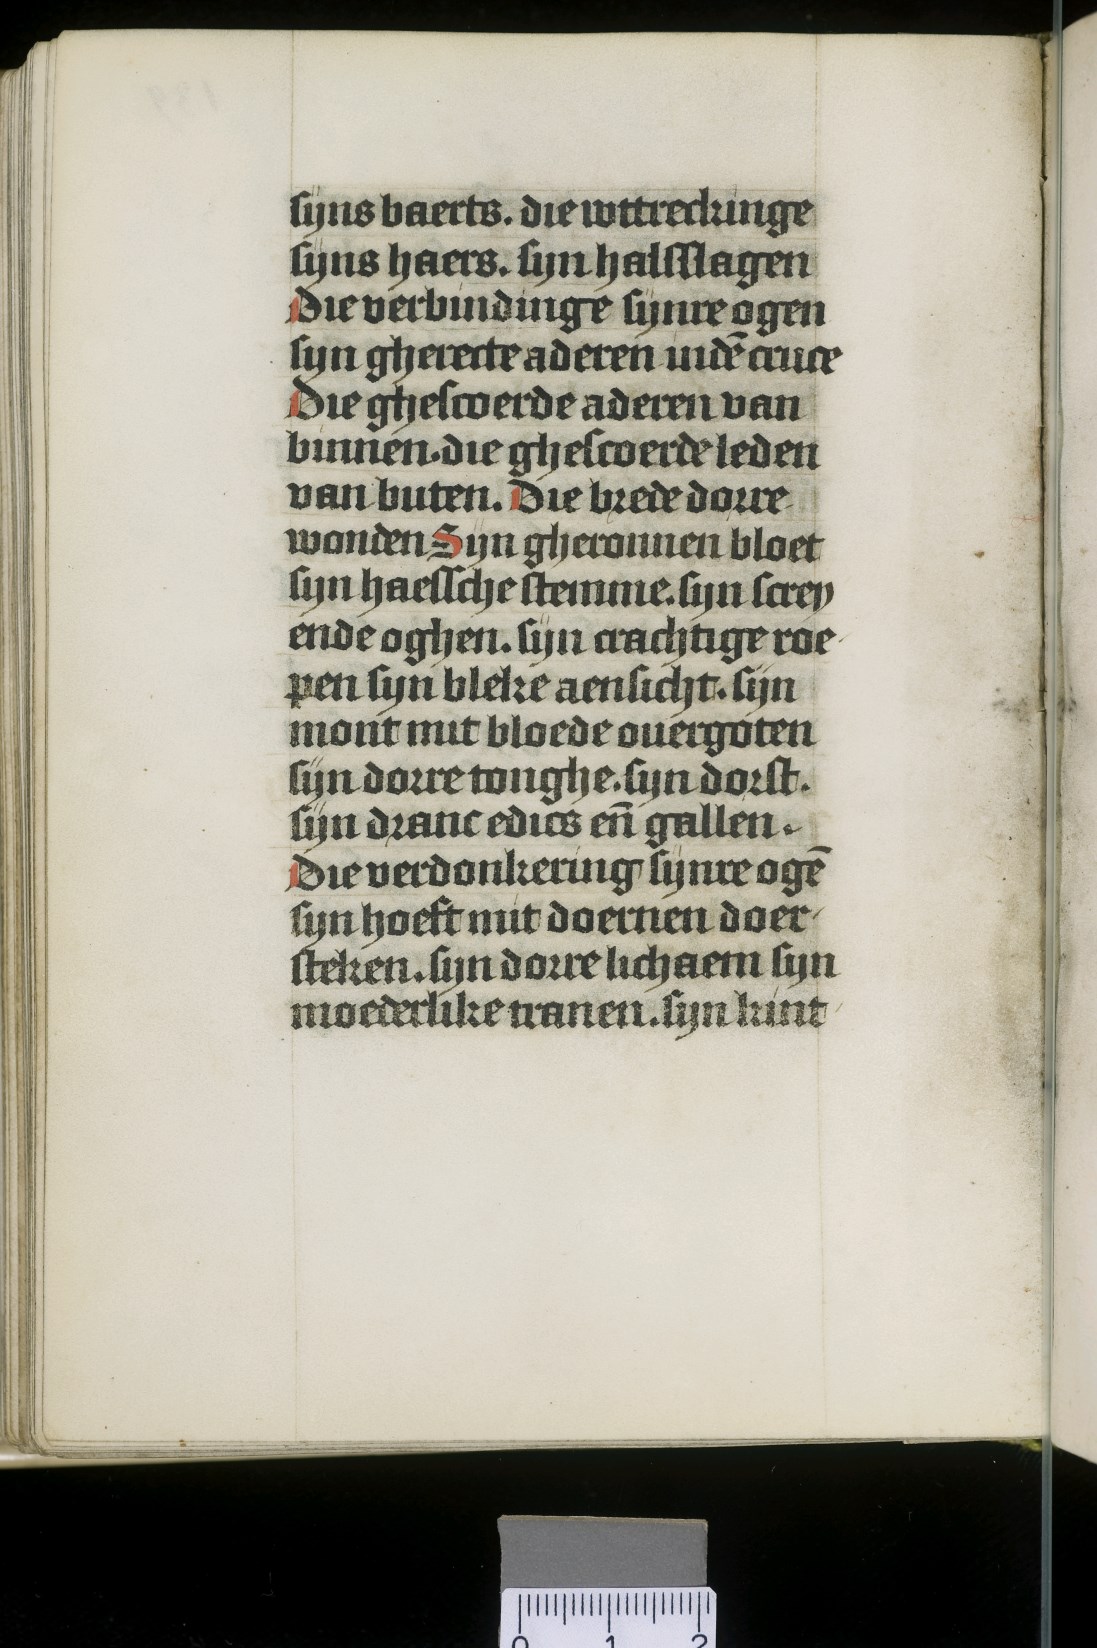 sijns baerts. die wttreckinge
sijns haers. syn halsslagen
Die verbindinge sijnre ogen
syn gherecte aderen indē cruce
Die ghescoerde aderen van
binnen. die ghescoerde leden
van buten. Die brede dorre
wonden Sijn gheronnen bloet
syn haessche stemme. syn screy
ende oghen. sijn crachtige roe-
pen syn bleke aensicht. sijn
mont mit bloede ouergoten
sijn dorre tonghe. syn dorst.
sijn dranc edics eñ gallen.
Die verdonkering sijnre ogē
syn hoeft mit doernen doer-
steken. syn dorre lichaem syn
moederlike tranen. syn kint-
0 1 2